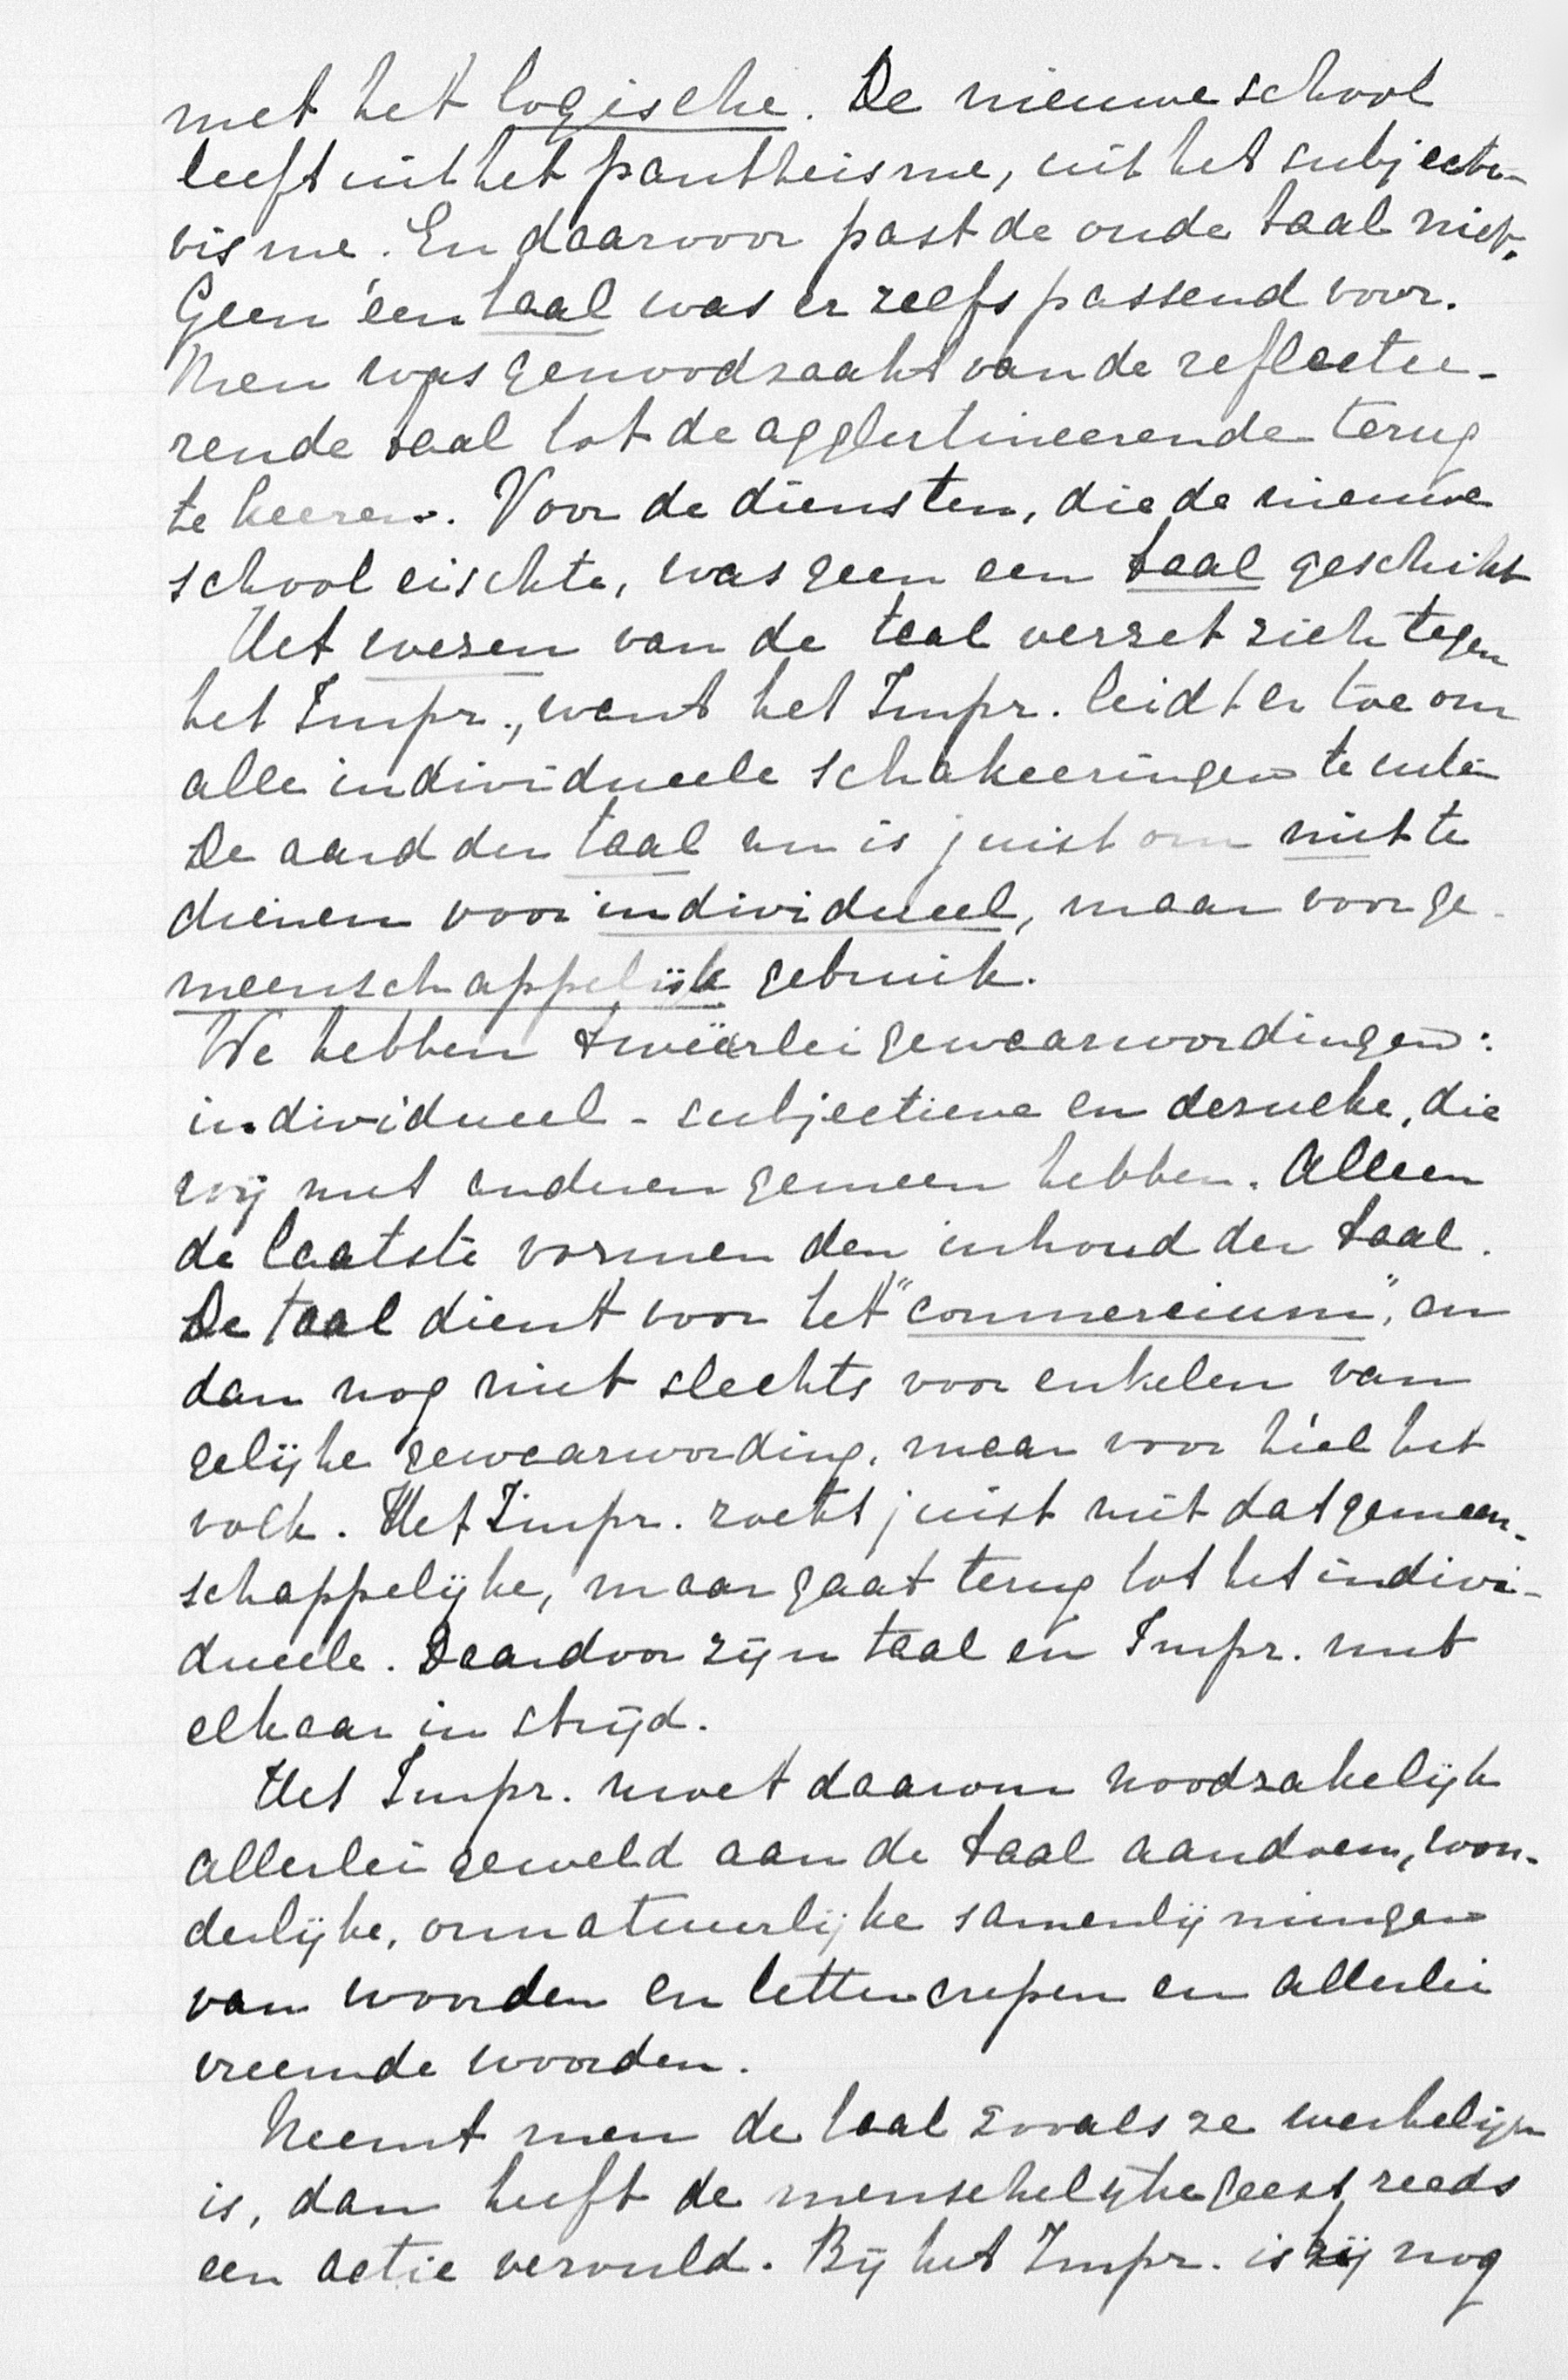 met het logische. De nieuwe school
leeft uit het pantheisme, uit het subjecti-
visme. En daarvoor past de oude taal niet.
Geen één taal was er zelfs passend voor.
Men was genoodzaakt van de reflectee-
rende taal tot de agglutineerende terug
te keeren. Voor de diensten, die de nieuwe
school eischte, was geen een taal geschikt
Het wezen van de taal verzet zich tegen
het Impr., want het Impr. leidt er toe om
alle individueele schakeeringen te uiten
De aard der taal nu is juist om niet te
dienen voor individueel, maar voor ge-
meenschappelijk gebruik.
We hebben tweeërlei gewaarwordingen:
individueel-subjectieve en dezulke, die
wij met anderen gemeen hebben. Alleen
de laatste vormen den inhoud der taal.
De taal dient voor het "commercium", en
dan nog niet slechts voor enkelen van
gelijke gewaarwording, maar voor héél het
volk. Het Impr. zoekt juist niet dat gemeen-
schappelijke, maar gaat terug tot het indivi-
dueele. Daardoor zijn taal en Impr. met
elkaar in strijd.
Het Impr. moet daarom noodzakelijk
allerlei geweld aan de taal aandoen, won-
derlijke, onnatuurlijke samenlijmingen
van woorden en lettergrepen en allerlei
vreemde woorden.
Neemt men de taal zooals ze werkelijk
is, dan heeft de menschelijke geest reeds
een actie vervuld. Bij het Impr. is hij nog